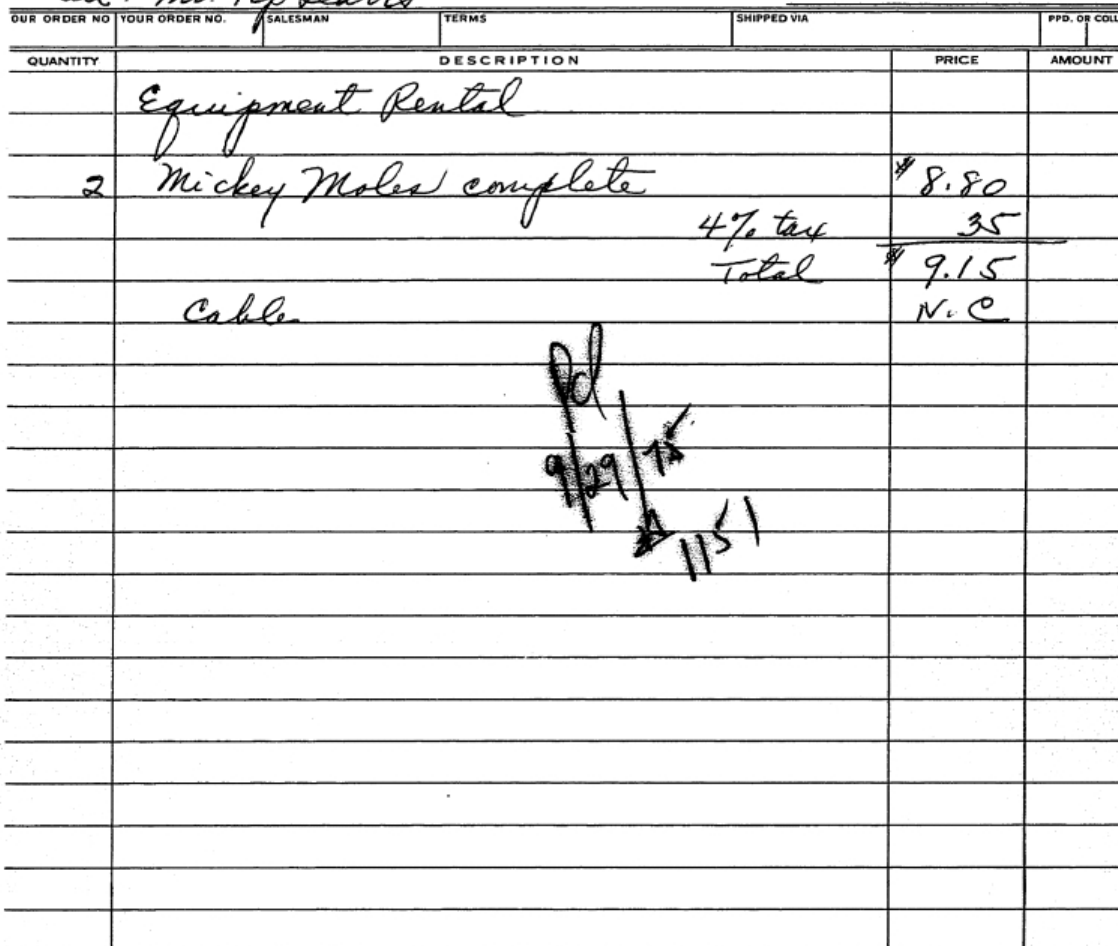 OUR ORDER NO YOUR ORDER NO. SALESMAN TERMS SHIPPED VIA PPD. OR COLL
QUANTITY DESCRIPTION PRICE AMOUNT
Equipment Rental
2 Mickey Moles complete $8.80
4% tax 35
Total $9.15
Cable N.C
Pd
9/29/75
1151